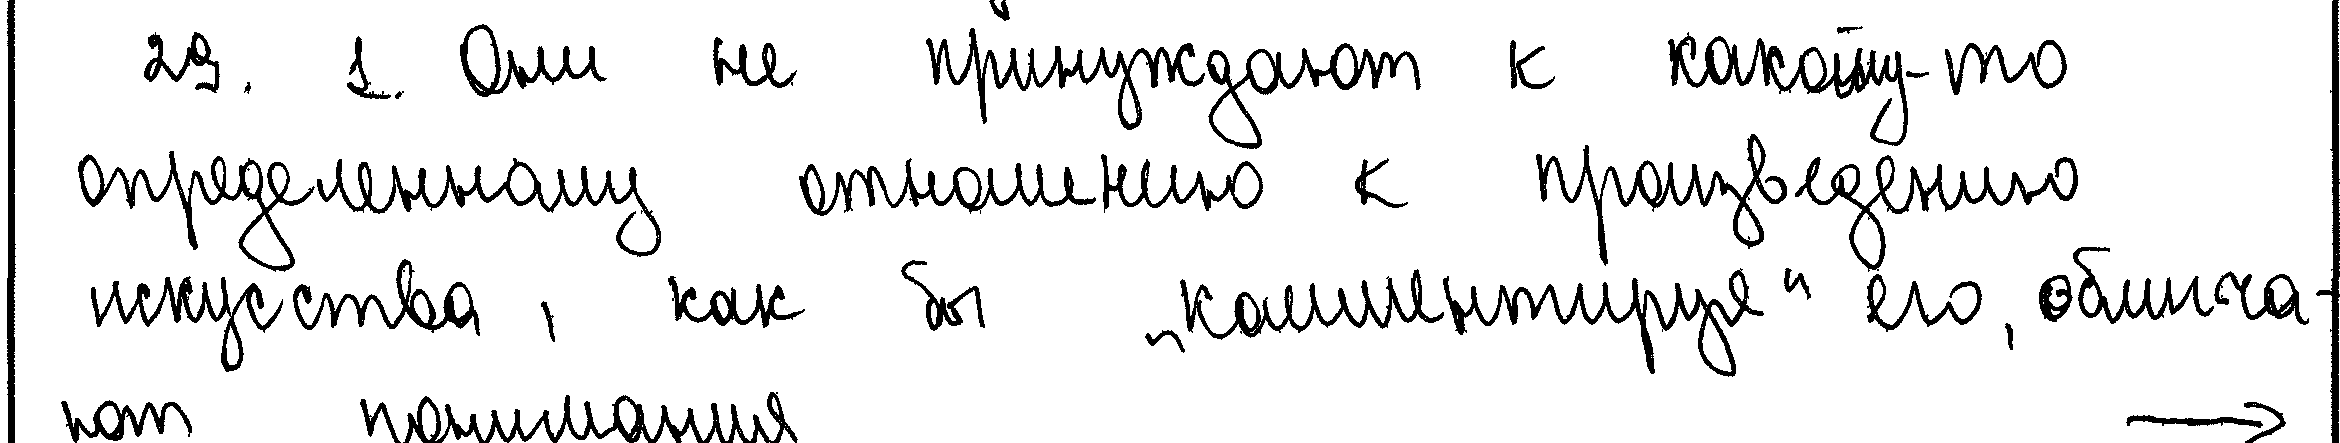 29. 1. Они не принуждают к какому-то
определенному отношению к произведению
искусства, как бы „комментируя" его, облигча-
ют понимания →